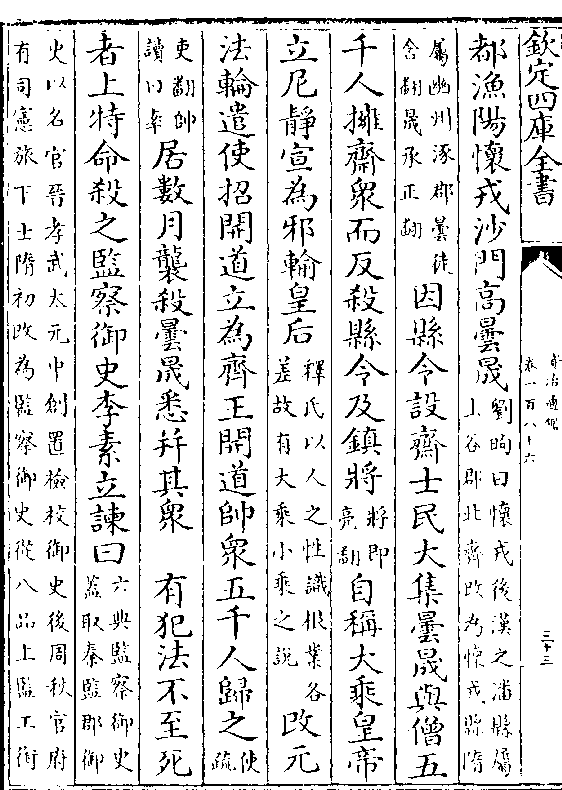 欽定四庫全書
資治通鑑
卷一百八十六
三十三
都漁陽懷戎沙門高曇晟劉昫曰懷戎後漢之潘縣屬上谷郡北齊改為懷戎縣隋
屬幽州涿郡曇徒含翻晟承正翻因縣令設齋士民大集曇晟與僧五
千人擁齋衆而反殺縣令及鎮將將即亮翻自稱大乘皇帝
立尼靜宣為邪輪皇后釋氏以人之性識根業各差故有大乘小乘之說改元
法輪遣使招開道立為齊王開道帥衆五千人歸之使疏
吏翻帥讀曰率居數月襲殺曇晟悉并其衆　有犯法不至死
者上特命殺之監察御史李素立諫曰六典監察御史蓋取秦監郡御
史以名官晉孝武太元中創置檢校御史後周秋官府有司憲旅下士隋初改為監察御史從八品上監工銜